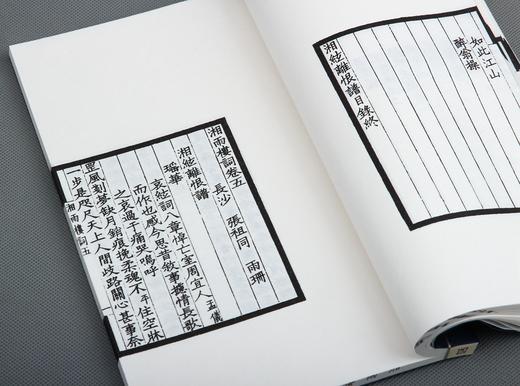 如此江山
醉翁操
湘絃離恨譜目錄終
湘雨樓詞卷五
長沙 張祖同 雨珊
湘絃離恨譜
瑤華
哀愍詞八章悼亡室周宜人孟儀
而作也感今思昔敘事攄情長歌
之哀過于痛哭嗚呼
罡風刦夢缺月銷痕挽柔魂不平住空牀
一步是咫尺天上人間歧路關心甚事奈
湘雨樓詞五
一